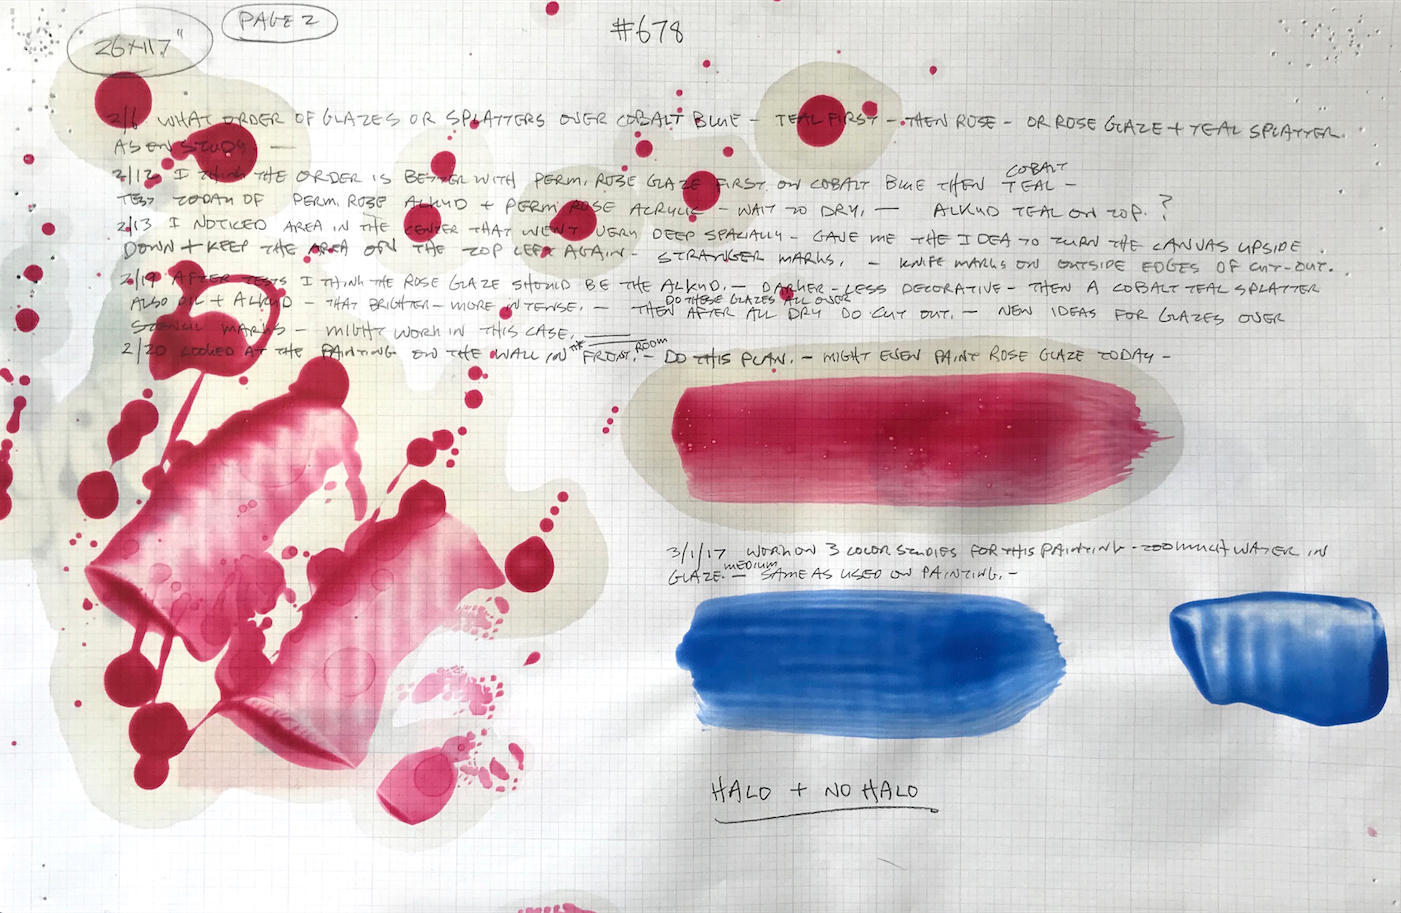 26x117"
PAGE 2
#678
2/6 WHAT ORDER OF GLAZES OR SPLATTERS OVER COBALT BLUE - TEAL FIRST - THEN ROSE - OR ROSE GLAZE + TEAL SPLATTER.
AS EN STUDY. —
2/12 I THINK THE ORDER IS BETTER WITH PERM. ROSE GLAZE FIRST. ON COBALT BLUE THEN COBALT TEAL -
TEST TODAY OF PERM ROSE ALKYD + PERM ROSE ACRYLIC - WAIT TO DRY. — ALKYD TEAL ON TOP. ?
2/13 I NOTICED AREA IN THE CENTER THAT WENT VERY DEEP SPACIALLY - GAVE ME THE IDEA TO TURN THE CANVAS UPSIDE
DOWN + KEEP THE AREA ON THE TOP LEFT AGAIN - STRANGER MARKS. - KNIFE MARKS ON OUTSIDE EDGES OF CUT-OUT.
2/19 AFTER TESTS I THINK THE ROSE GLAZE SHOULD BE THE ALKYD. - DARKER - LESS DECORATIVE - THEN A COBALT TEAL SPLATTER
ALSO OIL + ALKYD - THAT BRIGHTER - MORE INTENSE. - DO THESE GLAZES ALL OVER THEN AFTER ALL DRY DO CUT OUT. - NEW IDEAS FOR GLAZES OVER
STENCIL MARKS - MIGHT WORK IN THIS CASE.
2/20 LOOKED AT THE PAINTING ON THE WALL IN THE FRONT ROOM. - DO THIS PLAN. - MIGHT EVEN PAINT ROSE GLAZE TODAY -
3/1/17 WORK ON 3 COLOR STUDIES FOR THIS PAINTING - TOO MUCH WATER IN
GLAZE MEDIUM. - SAME AS USED ON PAINTING. -
HALO + NO HALO